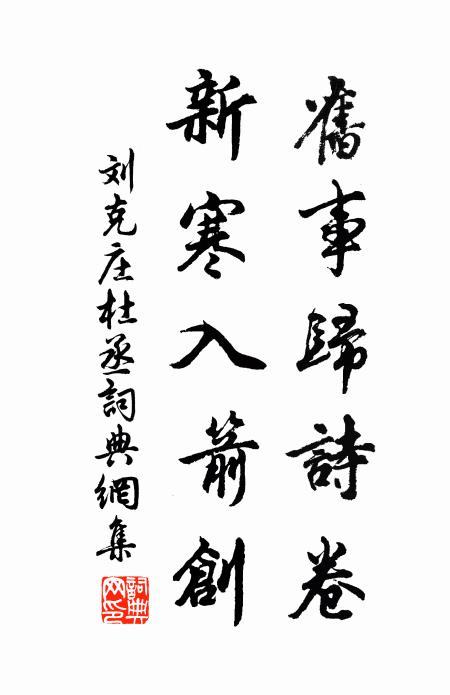 舊事歸詩卷
新寒入箭創
刘克庄杜丞詞典網集